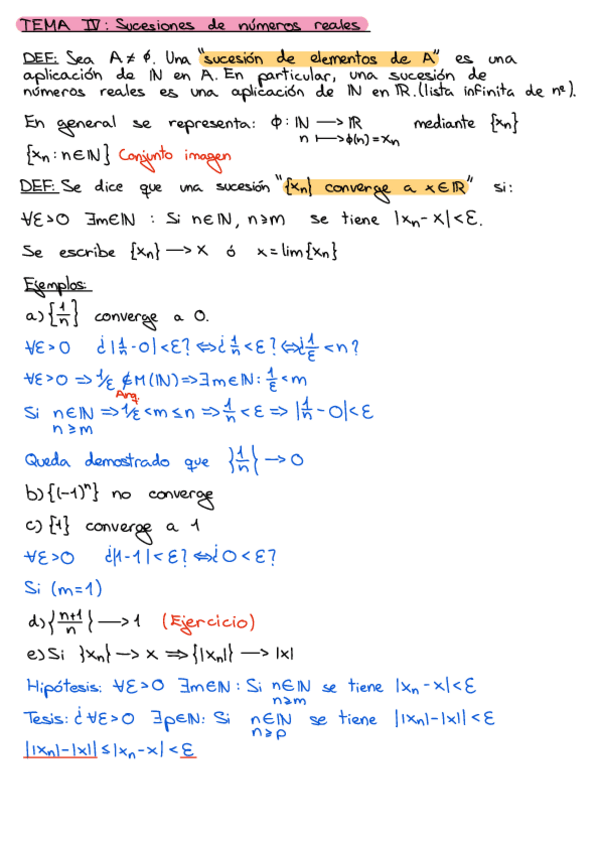 TEMA IV: Sucesiones de números reales
DEF: Sea A≠∅. Una "sucesión de elementos de A" es una
aplicación de ℕ en A. En particular, una sucesión de
números reales es una aplicación de ℕ en ℝ.(lista infinita de nº).
En general se representa: ϕ: ℕ ⟶ ℝ mediante {xn}
n ⟼ ϕ(n)=xn
{xn : n∈ℕ} Conjunto imagen
DEF: Se dice que una sucesión "{xn} converge a x∈ℝ" si:
∀ε>0 ∃m∈ℕ : Si n∈ℕ, n≥m se tiene |xn-x|<ε.
Se escribe {xn} ⟶ x ó x=lim{xn}
Ejemplos:
a) {1/n} converge a 0.
∀ε>0 ¿|1/n-0|<ε? ⟺ ¿1/n<ε? ⟺ ¿1/ε<n?
∀ε>0 ⟹ 1/ε ∉ M(ℕ) ⟹ ∃m∈ℕ: 1/ε<m
Arq.
Si n∈ℕ ⟹ 1/ε<m≤n ⟹ 1/n<ε ⟹ |1/n-0|<ε
n≥m
Queda demostrado que {1/n} ⟶ 0
b) {(-1)ⁿ} no converge
c) {1} converge a 1
∀ε>0 ¿|1-1|<ε? ⟺ ¿0<ε?
Si (m=1)
d) {n+1/n} ⟶ 1 (Ejercicio)
e) Si {xn} ⟶ x ⟹ {|xn|} ⟶ |x|
Hipótesis: ∀ε>0 ∃m∈ℕ: Si n∈ℕ se tiene |xn-x|<ε
n≥m
Tesis: ¿∀ε>0 ∃p∈ℕ: Si n∈ℕ se tiene ||xn|-|x||<ε
n≥p
||xn|-|x||≤|xn-x|<ε